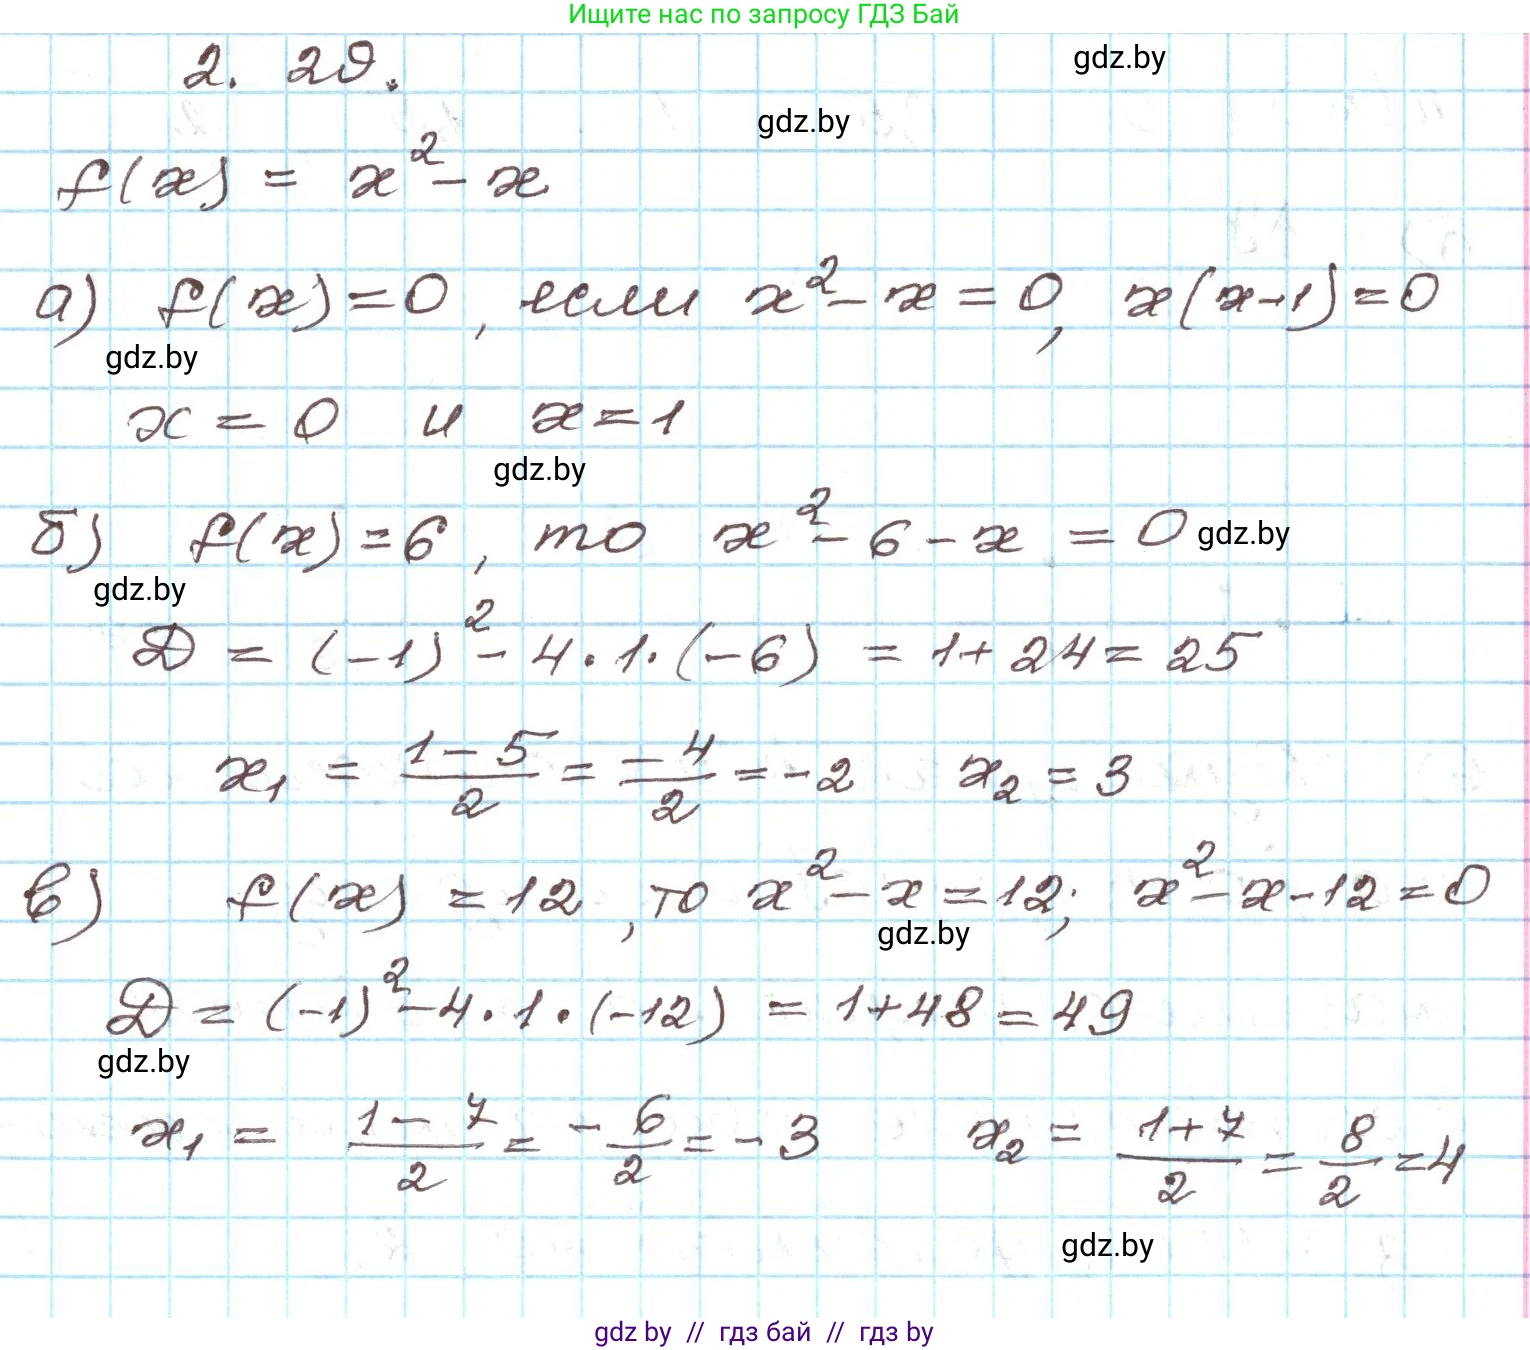 Ищите нас по запросу ГДЗ Бай
2. 29.
gdz.by
gdz.by
f(x) = x² - x
а) f(x) = 0, если x² - x = 0, x(x-1) = 0
gdz.by
x = 0 и x = 1
gdz.by
б) f(x) = 6, то x² - 6 - x = 0
gdz.by
gdz.by
D = (-1)² - 4 · 1 · (-6) = 1 + 24 = 25
x₁ = (1-5)/2 = -4/2 = -2 x₂ = 3
в) f(x) = 12, то x² - x = 12; x² - x - 12 = 0
gdz.by
D = (-1)² - 4 · 1 · (-12) = 1 + 48 = 49
gdz.by
x₁ = (1-7)/2 = -6/2 = -3 x₂ = (1+7)/2 = 8/2 = 4
gdz.by
gdz by // гдз бай // гдз by